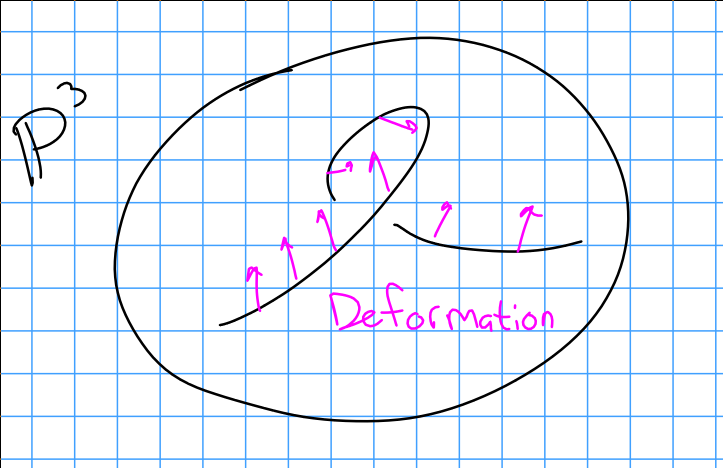 P³
Deformation